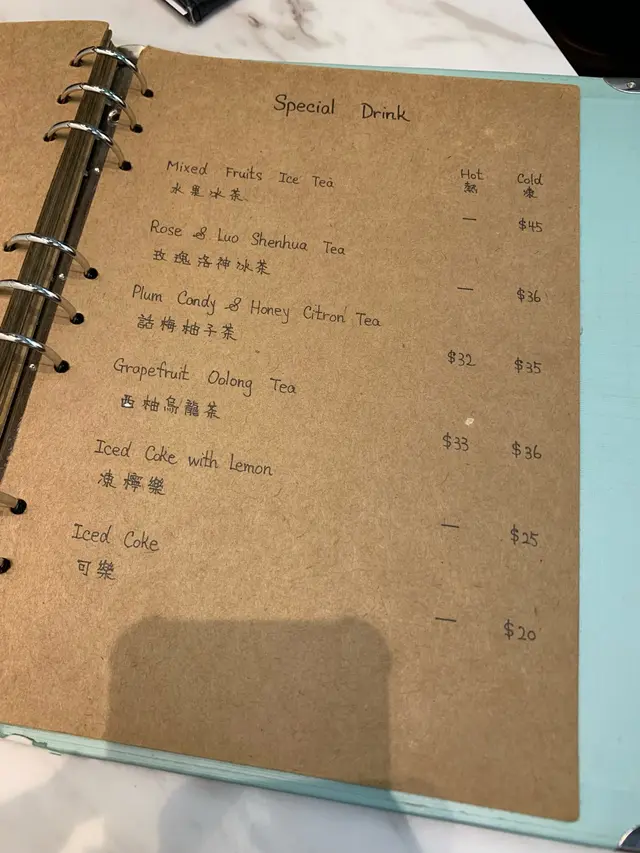 Special Drink
Hot Cold
熱 凍
Mixed Fruits Ice Tea
水果冰茶
— $45
Rose & Luo Shenhua Tea
玫瑰洛神冰茶
— $36
Plum Candy & Honey Citron Tea
話梅柚子茶
$32 $35
Grapefruit Oolong Tea
西柚烏龍茶
$33 $36
Iced Coke with Lemon
凍檸樂
— $25
Iced Coke
可樂
— $20